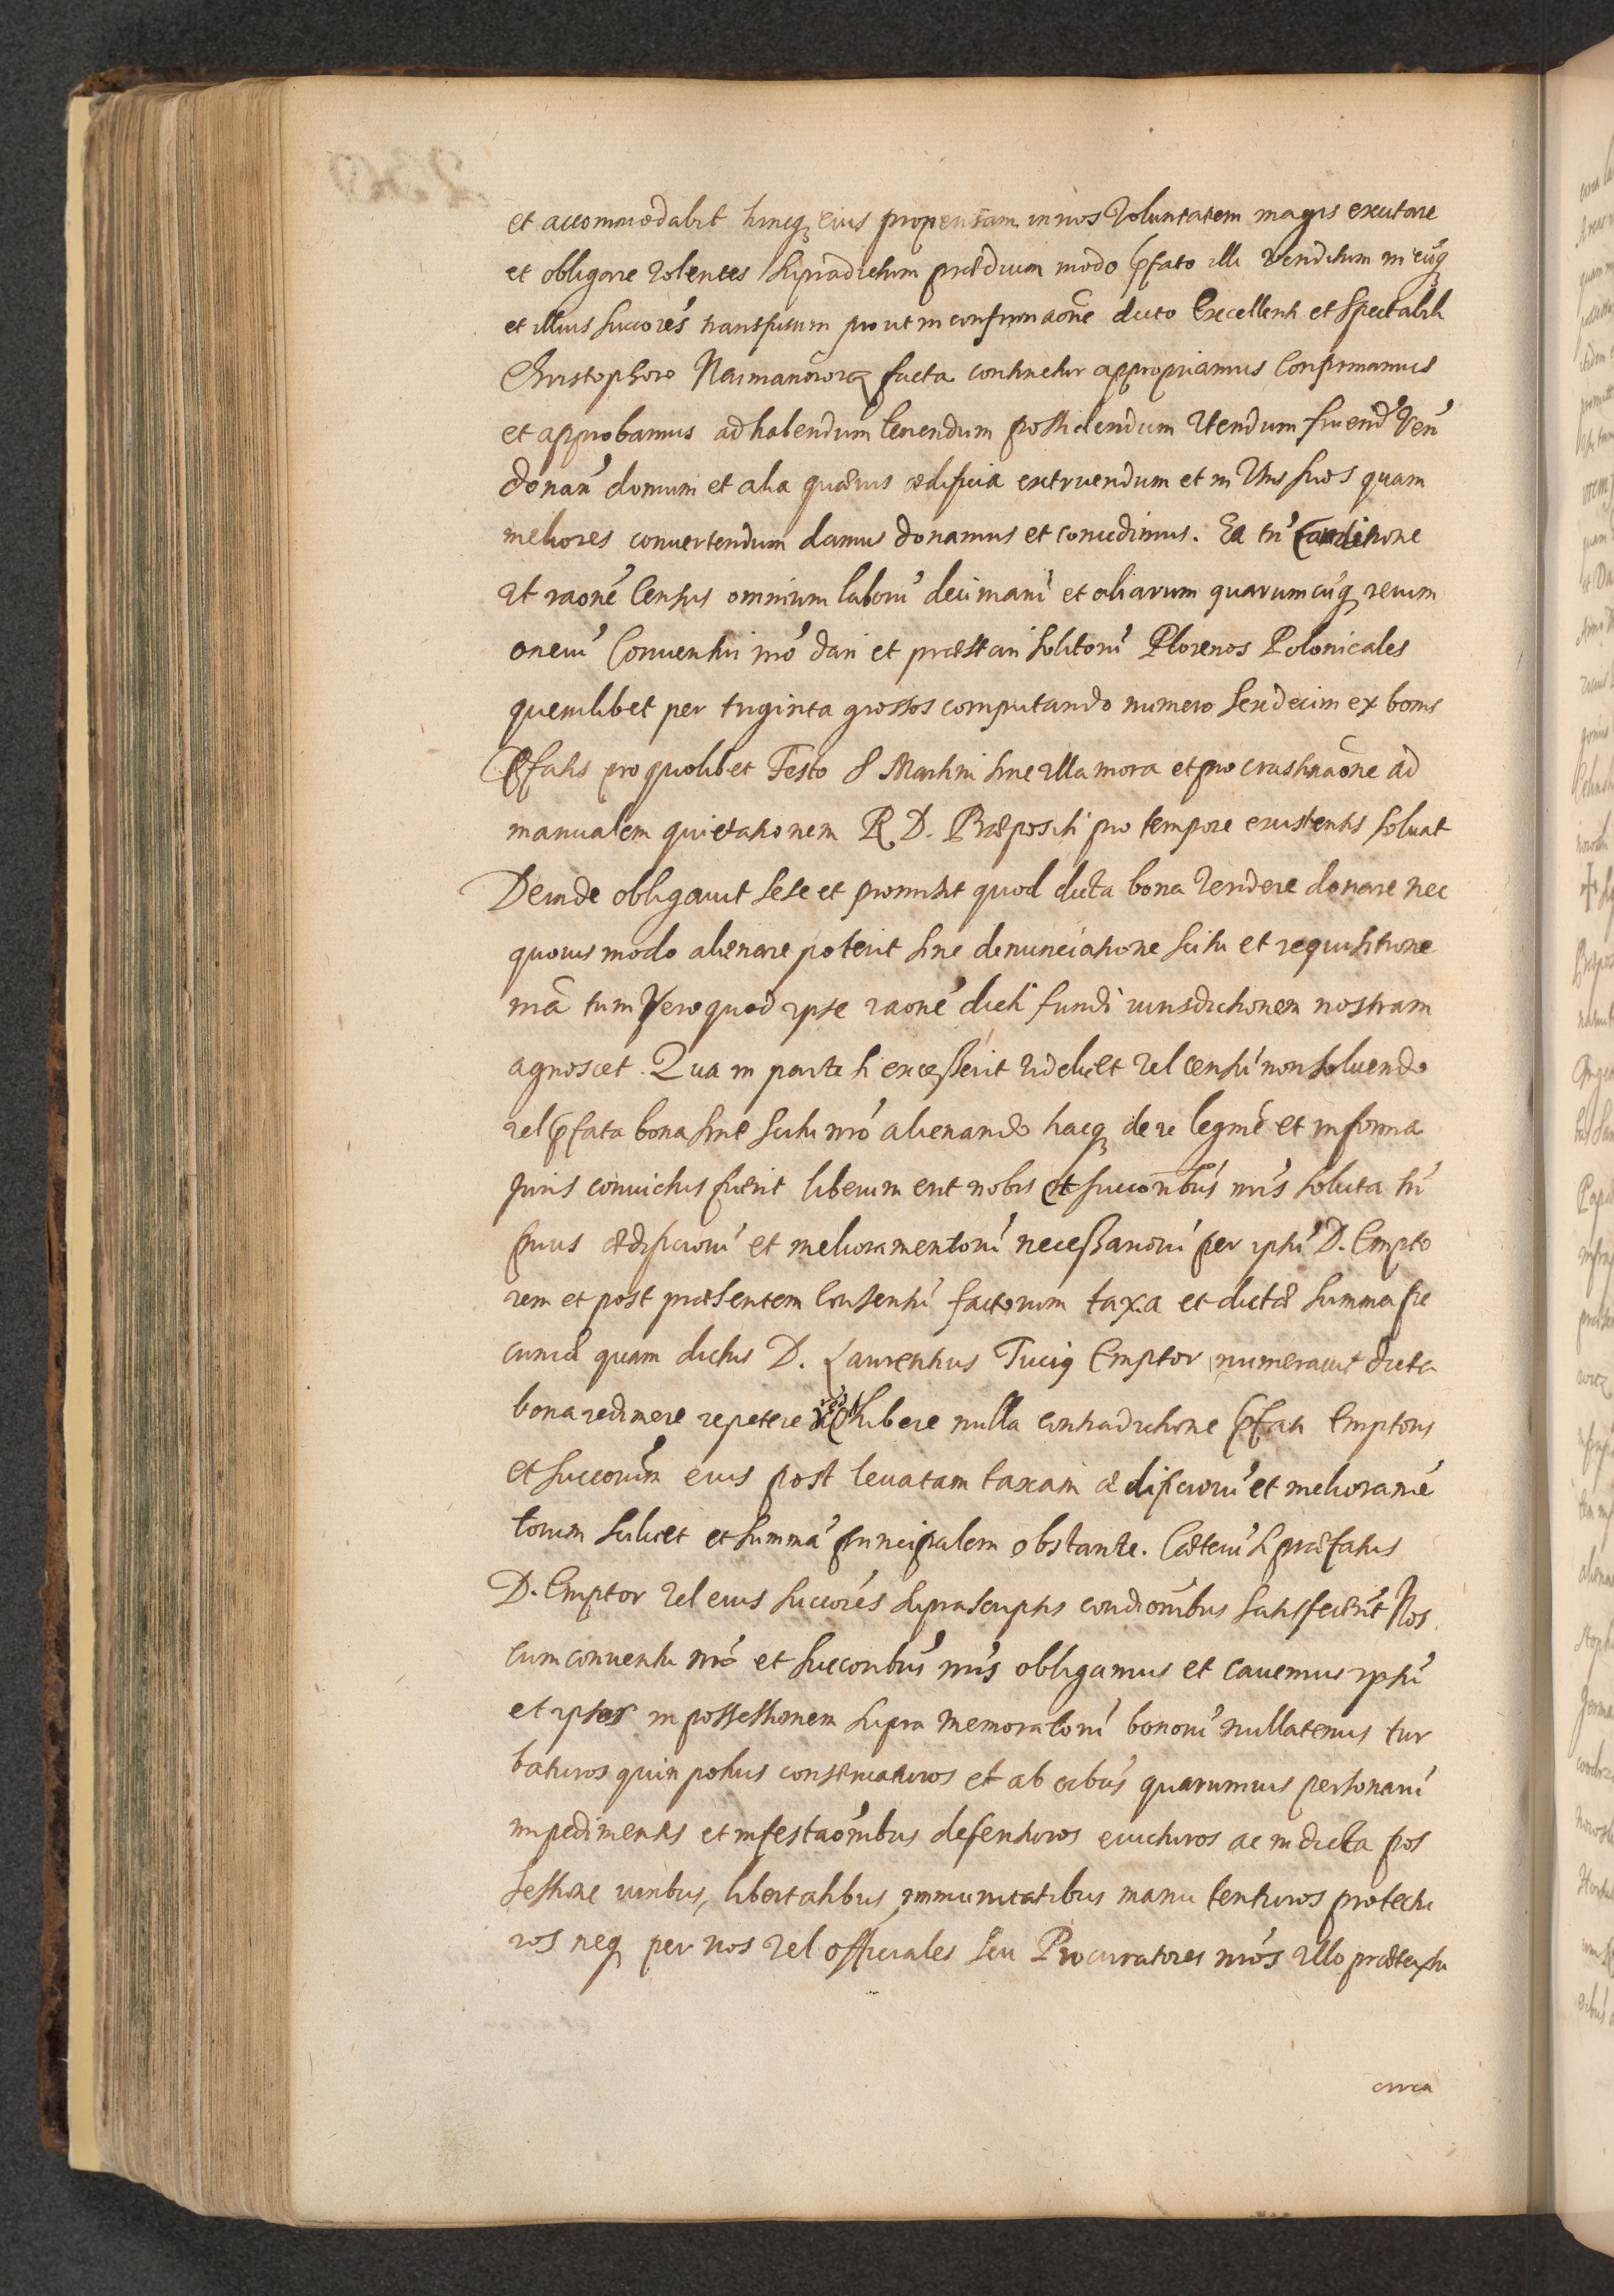 et accommodabit hincq eius propensam in nos Voluntatem magis excitare
et obligare volentes supradictum prædium modo pfato illi venditum in eūq
et illius succorēs transfusum prout in confirmaōne dicto Excellenti et Spectabili
Christophoro Naimanowicz facta continetur appropriamus Confirmamus
et approbamus ad habendum tenendum possidendum Utendum fruend' Ven'
donan' domum et alia quævis ædificia extruendum et in Usus suos quam
meliores convertendum damus donamus et concedimus. Ea tn' Conditione
Ut raone' Census omnium laboru' decimaru' et aliarum quarumcūq rerum
oneru' Conventui nrō dari et præstari solitoru' Florenos Polonicales
quemlibet per triginta grossos computando numero sendecim ex bonis
Pfatis pro quolibet Festo S Martini sine ulla mora et procrastinaōne ad
manualem quietationem R D. Præpositi pro tempore existentis solvat
Deinde obligavit sese et promisit quod dicta bona Vendere donare nec
quovis modo alienare poterit sine denunciatione scitu et requisitione
nrā tum Vero quod ipse raone' dicti fundi iurisdictionem nostram
agnoscet. Qua in parte si excesserit videlicet vel censu' non solvendo
vel pfata bona sine scitu nrō alienando hacq de re legme' et in forma
Juris convictus fuerit liberum erit nobis et successoribus nris soluta tn'
prius ædificioru' et melioramentoru' necessarioru' per ipsu' D. Empto
rem et post præsentem Consensu' factorum taxa et dictæ summa pe
cuniæ quam dictus D. Laurentius Emptor numeravit dicta
bona redimere repetere libere nulla contradictione pfati Emptoris
et successorum eius post levatam taxam ædificioru' et meliorame'
torum scilicet et summa' principalem obstante. Cæteru' si præfatus
D. Emptor vel eius succorēs suprascriptis condiōnibus satisfecerit Nos
cum conventu nrō et succoribus nris obligamus et cavemus ipsu'
et ipsos in possessionem supra memoratoru' bonoru' nullatenus tur
baturos quin potius conservaturos et ab oibus quarumvis personaru'
impedimentis et infestaōnibus defensuros evicturos ac in dicta pos
sessione iuribus, libertatibus immunitatibus manu tenturos protectu
ros neq per nos vel officiales seu Procuratores nrōs ullo prætextu
circa